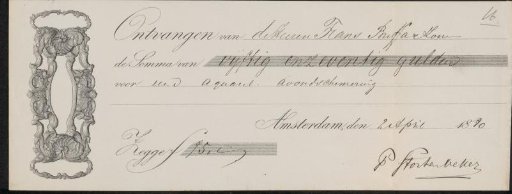 16
Ontvangen van de Heeren Frans Buffa & Zoon
de Somma van vijftig en zeventig gulden
voor een aquarel avondschemering
Amsterdam, den 2 April 1890
Zegge f
P Stortenbeker